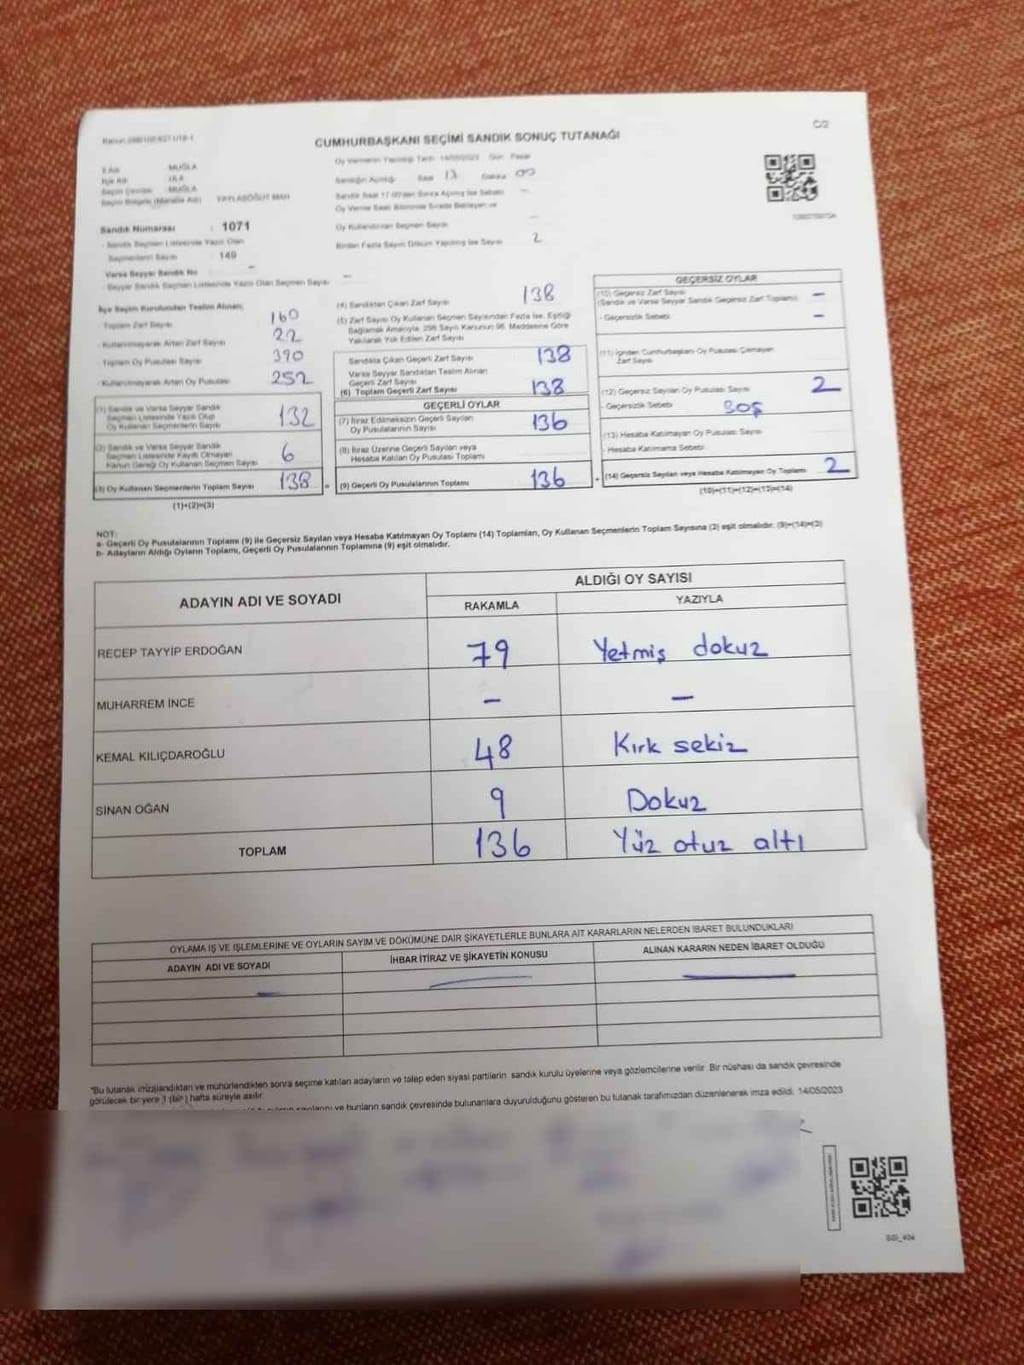 C/2
CUMHURBAŞKANI SEÇİMİ SANDIK SONUÇ TUTANAĞI
İl Adı MUĞLA
İlçe Adı ULA
Seçim Çevresi MUĞLA
Seçim Bölgesi (Mahalle Adı) YAYLASÖĞÜT MAH
Sandık Numarası : 1071
Sandık Seçmen Listesinde Yazılı Olan
Seçmenlerin Sayısı 149
Varsa Seyyar Sandık No –
Seyyar Sandık Seçmen Listesinde Yazılı Olan Seçmen Sayısı –
Oy Vermenin Yapıldığı Tarih 14/05/2023 Gün Pazar
Sandığın Açıldığı Saat 17 Dakika 00
Sandık Saat 17.00'den Sonra Açılmış İse Sebebi –
Oy Verme Saati Bitiminde Sırada Bekleyen ve
Oy Kullandırılan Seçmen Sayısı –
Birden Fazla Sayım Döküm Yapılmış İse Sayısı 2
İlçe Seçim Kurulundan Teslim Alınan;
Toplam Zarf Sayısı 160
Kullanılmayarak Artan Zarf Sayısı 22
Toplam Oy Pusulası Sayısı 390
Kullanılmayarak Artan Oy Pusulası 252
(1) Sandık ve Varsa Seyyar Sandık
Seçmen Listesinde Yazılı Olup
Oy Kullanan Seçmenlerin Sayısı 132
(2) Sandık ve Varsa Seyyar Sandık
Seçmen Listesinde Kayıtlı Olmayan
Kanun Gereği Oy Kullanan Seçmen Sayısı 6
(3) Oy Kullanan Seçmenlerin Toplam Sayısı 138
(1)+(2)=(3)
(4) Sandıktan Çıkan Zarf Sayısı 138
(5) Zarf Sayısı Oy Kullanan Seçmen Sayısından Fazla İse, Eşitliği
Sağlamak Amacıyla, 298 Sayılı Kanunun 98. Maddesine Göre
Yakılarak Yok Edilen Zarf Sayısı
Sandıkta Çıkan Geçerli Zarf Sayısı 138
Varsa Seyyar Sandıktan Teslim Alınan
Geçerli Zarf Sayısı
(6) Toplam Geçerli Zarf Sayısı 138
GEÇERLİ OYLAR
(7) İtiraz Edilmeksizin Geçerli Sayılan
Oy Pusulalarının Sayısı 136
(8) İtiraz Üzerine Geçerli Sayılan veya
Hesaba Katılan Oy Pusulası Toplamı
(9) Geçerli Oy Pusulalarının Toplamı 136
GEÇERSİZ OYLAR
(10) Geçersiz Zarf Sayısı –
(Sandık ve Varsa Seyyar Sandık Geçersiz Zarf Toplamı)
- Geçersizlik Sebebi –
(11) İçinden Cumhurbaşkanı Oy Pusulası Çıkmayan
Zarf Sayısı
(12) Geçersiz Sayılan Oy Pusulası Sayısı 2
- Geçersizlik Sebebi BOŞ
(13) Hesaba Katılmayan Oy Pusulası Sayısı
- Hesaba Katılmama Sebebi
(14) Geçersiz Sayılan veya Hesaba Katılmayan Oy Toplamı 2
(10)+(11)+(12)+(13)=(14)
NOT:
a- Geçerli Oy Pusulalarının Toplamı (9) ile Geçersiz Sayılan veya Hesaba Katılmayan Oy Toplamı (14) Toplamları, Oy Kullanan Seçmenlerin Toplam Sayısına (3) eşit olmalıdır. (9)+(14)=(3)
b- Adayların Aldığı Oyların Toplamı, Geçerli Oy Pusulalarının Toplamına (9) eşit olmalıdır.
ADAYIN ADI VE SOYADI
ALDIĞI OY SAYISI
RAKAMLA YAZIYLA
RECEP TAYYİP ERDOĞAN 79 Yetmiş dokuz
MUHARREM İNCE – –
KEMAL KILIÇDAROĞLU 48 Kırk sekiz
SİNAN OĞAN 9 Dokuz
TOPLAM 136 Yüz otuz altı
OYLAMA İŞ VE İŞLEMLERİNE VE OYLARIN SAYIM VE DÖKÜMÜNE DAİR ŞİKAYETLERLE BUNLARA AİT KARARLARIN NELERDEN İBARET BULUNDUKLARI
ADAYIN ADI VE SOYADI İHBAR İTİRAZ VE ŞİKAYETİN KONUSU ALINAN KARARIN NEDEN İBARET OLDUĞU
*Bu tutanak imzalandıktan ve mühürlendikten sonra seçime katılan adayların ve talep eden siyasi partilerin sandık kurulu üyelerine veya gözlemcilerine verilir. Bir nüshası da sandık çevresinde
görülecek bir yere 1 (bir) hafta süreyle asılır.
ve bunların sandık çevresinde bulunanlara duyurulduğunu gösteren bu tutanak tarafımızdan düzenlenerek imza edildi. 14/05/2023